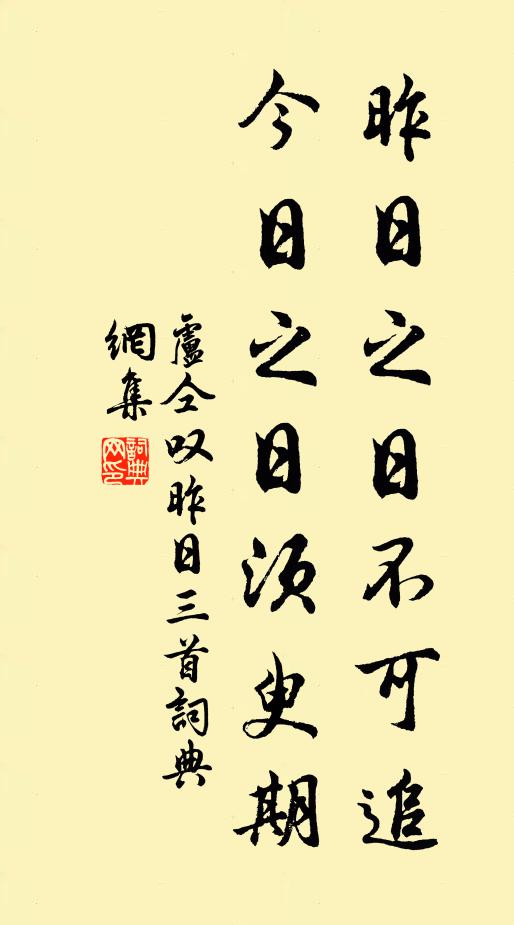 昨日之日不可追
今日之日須臾期
盧仝叹昨日三首詞典
網集
詞典網印